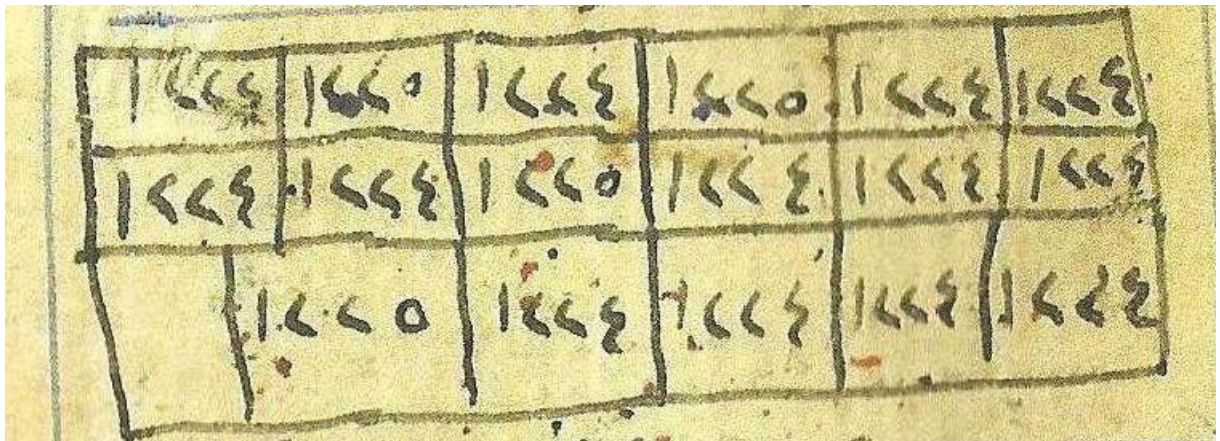 ١٢٢٤ ١٢٢٤ ١٢٢٥ ١٢٢٤ ١٢٢٥ ١٢٢٤
١٢٢٤ ١٢٢٤ ١٢٢٤ ١٢٢٥ ١٢٢٤ ١٢٢٤
١٢٢٤ ١٢٢٤ ١٢٢٤ ١٢٢٤ ١٢٢٥